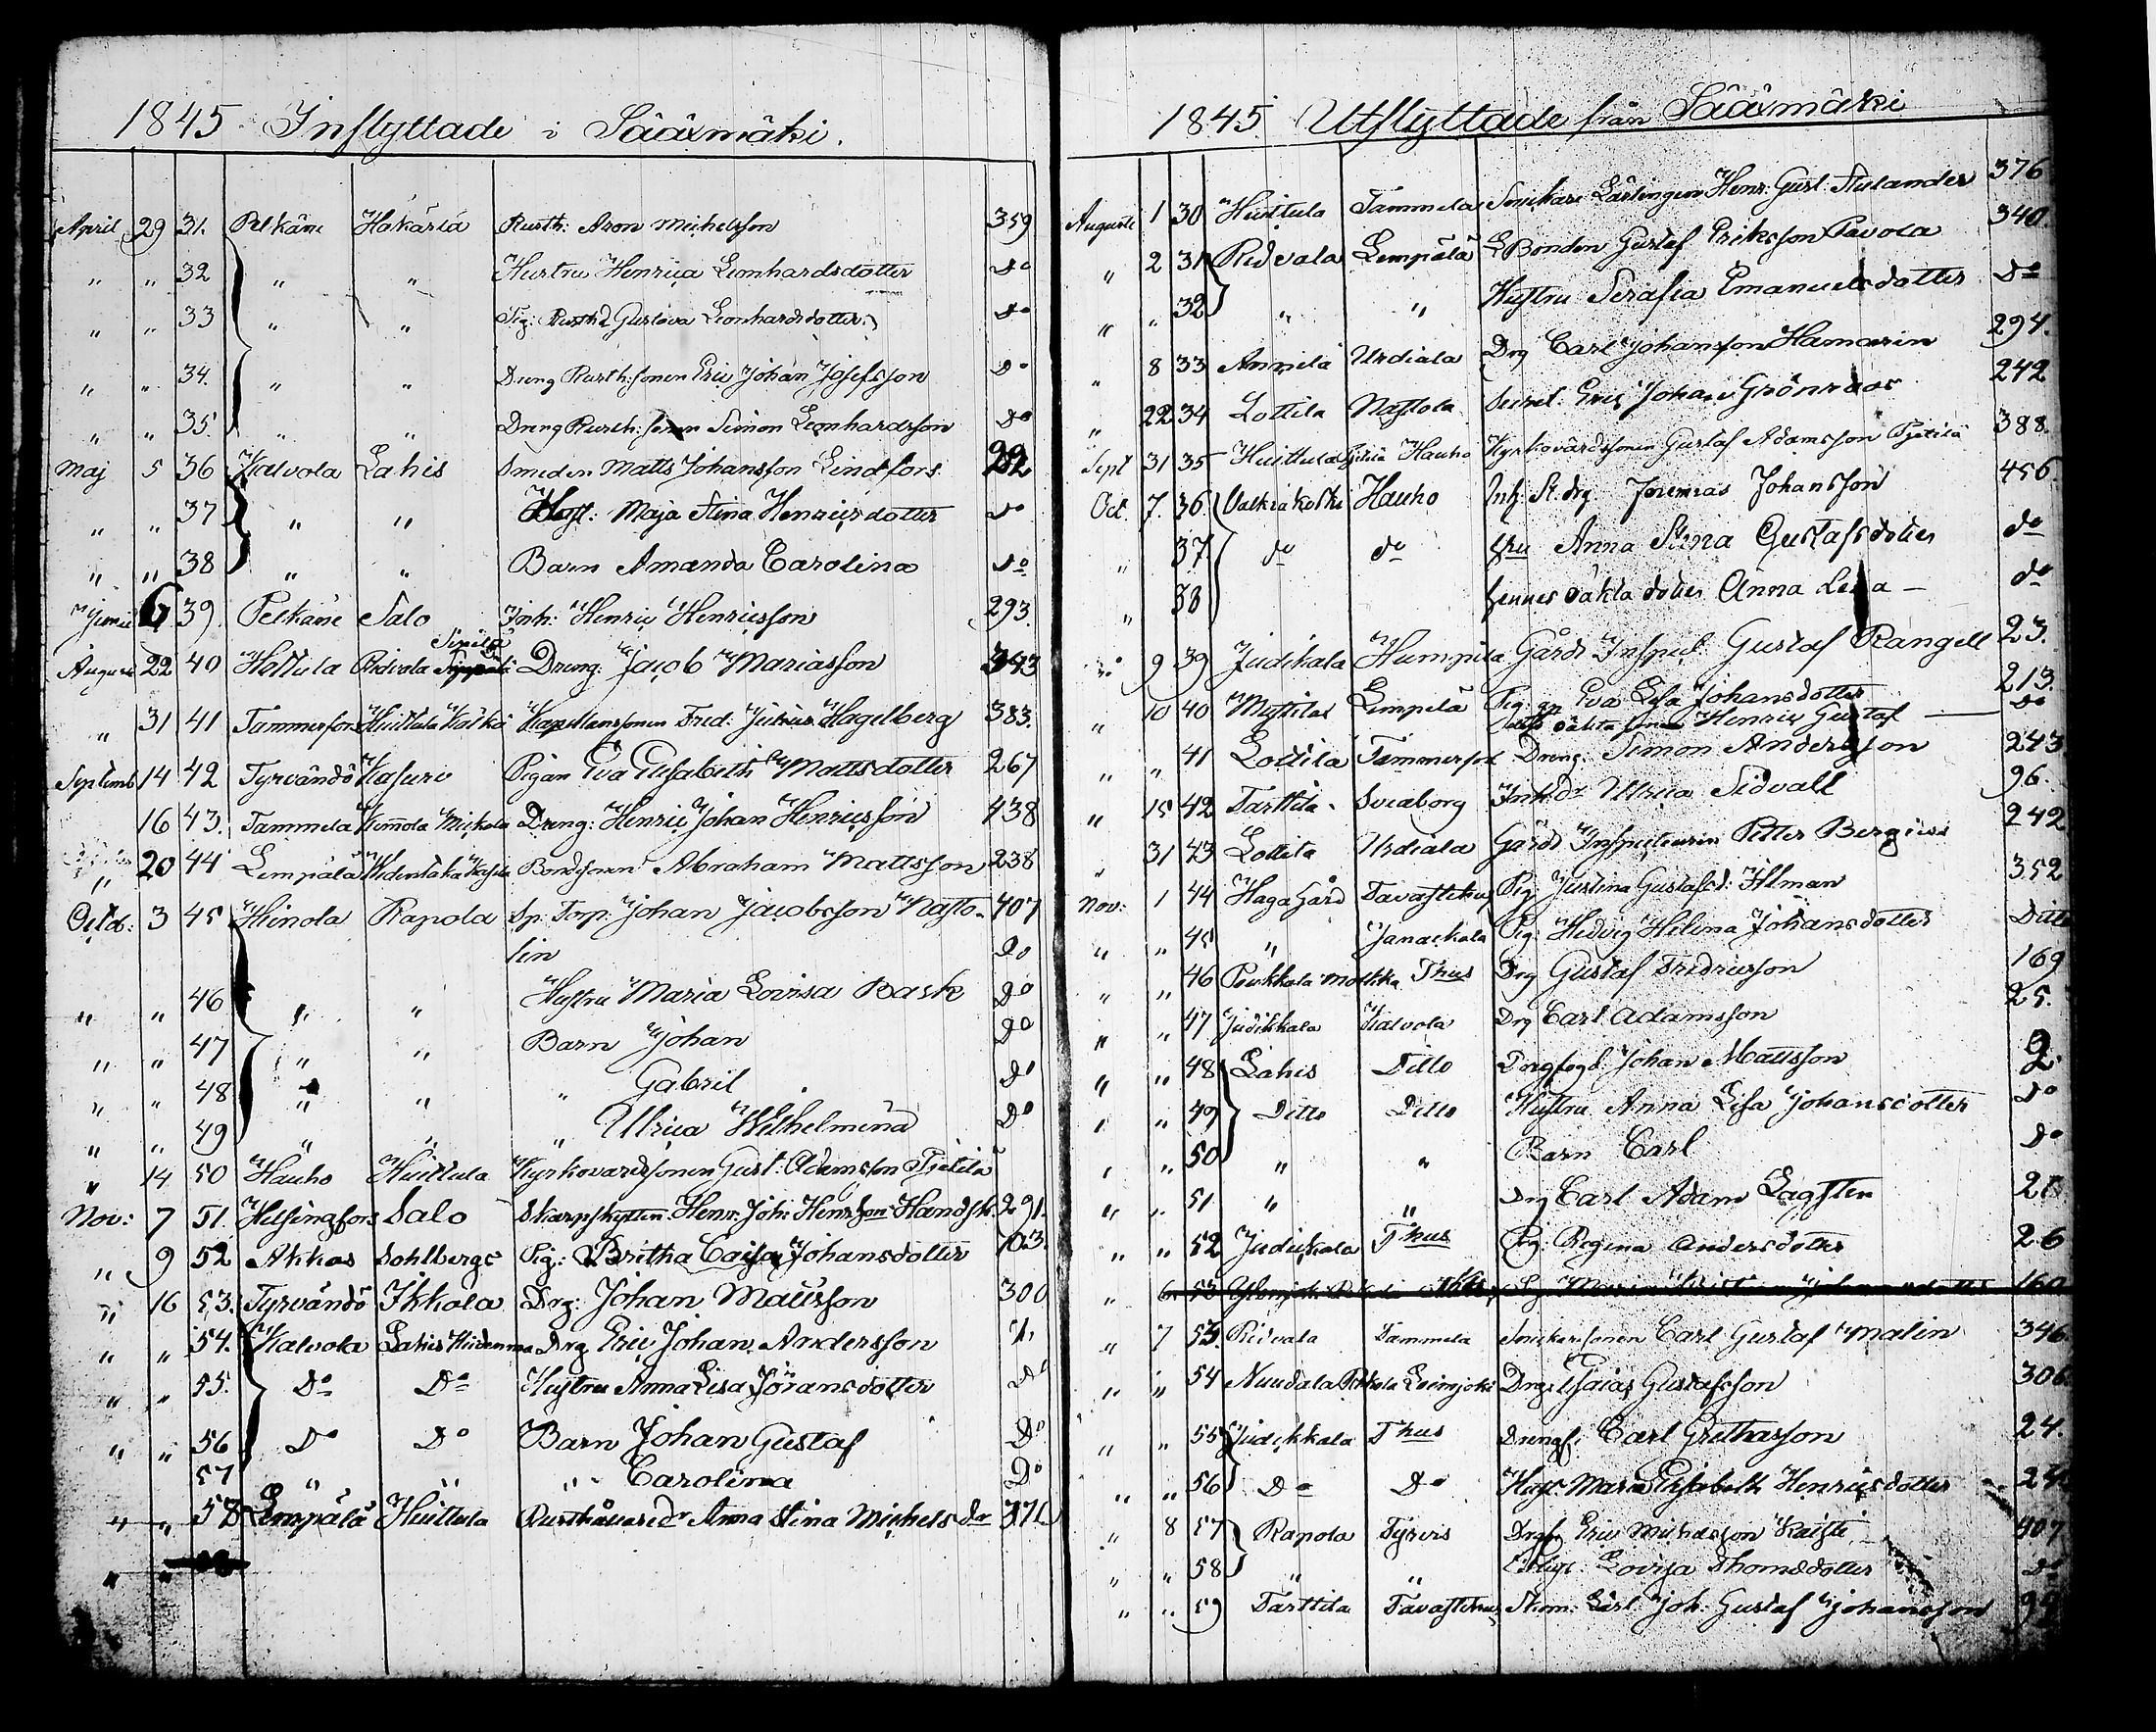 1845 Inflyttade i Sääxmäki.
April 29 31. Pelkäne Hakärlä Rusth: Aron Michelsson 359
" " 32 " " Hustru Henrica Leonhardsdotter Do
" " 33 " " Pig: Rusth d Gustava Leonhardsdotter Do
" " 34. " " Dreng Rusth: sonen Eric Johan Josefsson Do
" " 35. " " Dreng Rusth: sonen Simon Leonhardsson Do
Maj 5 36 Kalvola Lahis Smeden Matts Johansson Lindfors
" " 37 " " Hust: Maja Stina Henricsdotter Do
" " 38 " " Barn Amanda Carolina Do
Junii 6 39. Pelkäne Salo Inh: Henric Henricsson 293.
August 22 40 Hattula Ridvala Sipilä Dreng: Jacob Mariasson 343
" 31 41 Tammerfors Huittula Kölkä Kapellanssonen Fred: Julius Hagelberg 383.
Septemb 14 42 Tyrvändö Kasuri Pigan Eva Elisabeth Mattsdotter 267
16 43. Tammela Kemmola Mickola Dreng: Henric Johan Henricsson 438
" 20 44 Lempälä Bondsonen Abraham Mattsson 238
Octob: 3 45 Hinola Rapola Sp: Torp: Johan Jacobsson Nasto- 407
lin Do
" " 46 " " Hustru Maria Lovisa Bask Do
" " 47 " " Barn Johan Do
" " 48 " " " Gabril Do
" " 49 " " " Ulrica Wilhelmina Do
" 14 50 Hauho Huittula Kyrkovärdssonen Gust: Adamsson Pjätilä
Nov: 7 51. Helsingfors Salo Skarpskytten Henr: Joh: Henrsson Handsk. 291.
" 9 52 Akkas Sohlbergs Pig: Britha Caisa Johansdotter 703.
" 16 53. Tyrvändö Ikkala Drg: Johan Mattsson 300
" " 54. Kalvola Lahis Drg Eric Johan Andersson
" " 55. Do Do Hustru Anna Lisa Göransdotter Do
" " 56 Do Do Barn Johan Gustaf Do
57 " " " Carolina Do
" " 58 Lempälä Huittula Rusthållaredr Anna Stina Michelsdr 371
" "
1845 Utflyttade från Sääxmäki
Augusti 1 30 Huittula Tammela Snickare Lärlingen Henr: Gust: Stulander 376
" 2 31 Ridvala Lempälä L Bonden Gustaf Eriksson Pavola 340.
" " 32 " " Hustru Serafia Emanuelsdotter Do
" 8 33 Annila Urdiala Drg Carl Johansson Hamarin 294.
" 22 34 Lottila Nastola Eric Johan Grönroos 242
Sept 31 35 Huittula Pjätilä Hauho Kyrkovärdssonen Gustaf Adamsson Pjätilä 388.
Oct. 7. 36. Valkiakoski Hauho Inh: St. drg. Jeremias Johansson 456.
" 37 do do hru Anna Stina Gustafsdotter do
" 38 hennes oäkta dotter Anna Lisa — do
" 9 39 Judikala Humpila Gårds Inspect Gustaf Rangell 23.
" 10 40 Mattila Lempälä Pig: Eva Lisa Johansdotter 213.
oäkta sonen Henric Gustaf — Do
" " 41 Lottila Tammerfors Dreng: Simon Andersson 243
" 15 42 Tarttila Sveaborg Inh:dr Ulrica Sidvall 96.
" 31 43 Lottila Urdiala Gårds Inspectoren Petter Bergius 242
Nov: 1 44 Haga Gård Tavastehus Pig: Justina Gustafsd: Ilman 352
" " 45 " Janackala Pig: Hedvig Helena Johansdotter Ditto
" " 46 Poikkala Thus Drg Gustaf Fredricsson 169
" " 47 Judikkala Kalvola Drg Carl Adamsson 25.
" " 48 Lahis Ditto Drgfogd Johan Mattsson 2.
" " 49 Ditto Ditto Hustru Anna Lisa Johansdotter Do
" " 50 " " Barn Carl Do
" " 51 " " Drg Carl Adam Lagsten
" " 52 Judikkala Thus Pig: Regina Andersdotter 26
" 6 53 160
" 7 53. Ridvala Tammela Snickarsonen Carl Gustaf Malin 346
" " 54 Nuudala Loimjoki Drg: Esaias Gustafsson 306
" " 55 Judikkala Thus Drengs. Carl Grethasson 24.
" " 56 Do Do Hust: Maria Elisabeth Henricsdotter 24
" 8 57 Rapola Tyrvis Drg Eric Michelsson Kaisti 407
" " 58 " " Hust: Lovisa Thomsdotter Do
" " 59 Tarttila Tavastehus Skom: Lärl: Joh: Gustaf Johansson